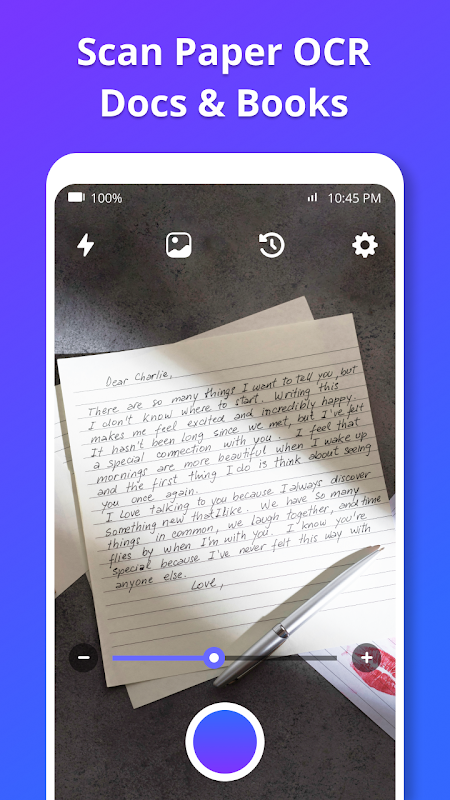 Scan Paper OCR
Docs & Books
100%
10:45 PM
Dear Charlie,
There are so many things I want to tell you, but
I don't know where to start. Writing this
makes me feel excited and incredibly happy.
It hasn't been long since we met, but I've felt
a special connection with you. I feel that
mornings are more beautiful when I wake up
and the first thing I do is think about seeing
you once again.
I love talking to you because I always discover
something new that I like. We have so many
things in common, we laugh together, and time
flies by when I'm with you. I know you're
special because I've never felt this way with
anyone else.
Love,